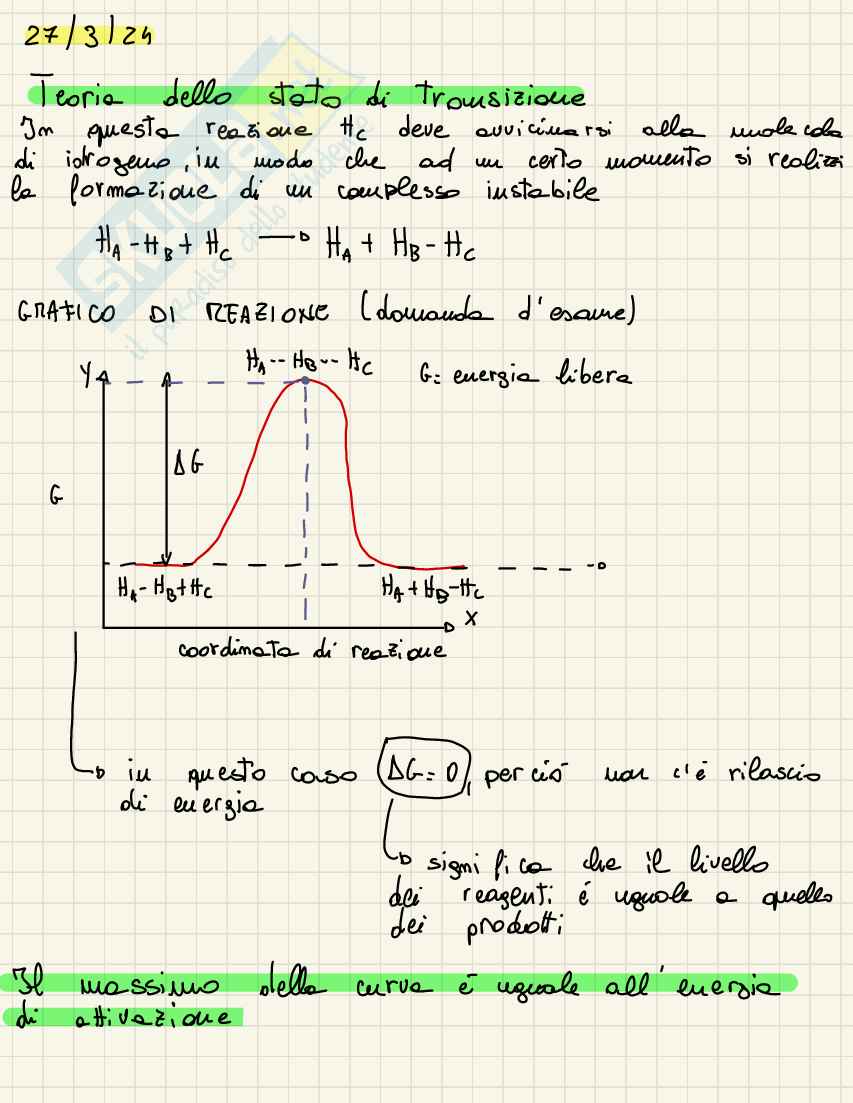 27/3/24
Teoria dello stato di transizione
In questa reazione Hc deve avvicinarsi alla molecola
di idrogeno, in modo che ad un certo momento si realizzi
la formazione di un complesso instabile
HA - HB + HC → HA + HB - HC
GRAFICO DI REAZIONE (domanda d'esame)
HA -- HB -- HC
Y
G = energia libera
ΔG
G
HA - HB + HC
HA + HB - HC
X
coordinata di reazione
in questo caso ΔG = 0, perciò non c'è rilascio
di energia
significa che il livello
dei reagenti é uguale a quello
dei prodotti
Il massimo della curva é uguale all'energia
di attivazione
SKUOLA.net
il paradiso dello studente